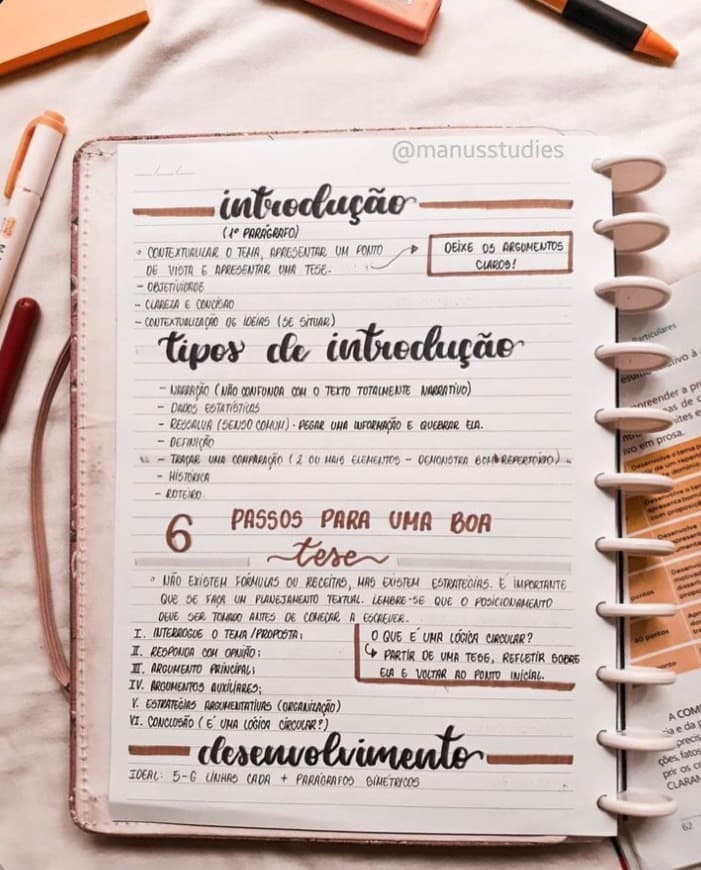 @manusstudies
introdução
(1º PARÁGRAFO)
◦ CONTEXTUALIZAR O TEMA, APRESENTAR UM PONTO
DE VISTA E APRESENTAR UMA TESE.
DEIXE OS ARGUMENTOS
CLAROS!
- OBJETIVIDADE
- CLAREZA E CONCISÃO
- CONTEXTUALIZAÇÃO DE IDEIAS (SE SITUAR)
tipos de introdução
- NARRAÇÃO (NÃO CONFUNDA COM O TEXTO TOTALMENTE NARRATIVO)
- DADOS ESTATÍSTICOS
- RESSALVA (SENSO COMUM) · PEGAR UMA INFORMAÇÃO E QUEBRAR ELA.
- DEFINIÇÃO
- TRAÇAR UMA COMPARAÇÃO (2 OU MAIS ELEMENTOS - DEMONSTRA BOM REPERTÓRIO)
- HISTÓRICA
- ROTEIRO.
6 PASSOS PARA UMA BOA
tese
◦ NÃO EXISTEM FÓRMULAS OU RECEITAS, MAS EXISTEM ESTRATÉGIAS. É IMPORTANTE
QUE SE FAÇA UM PLANEJAMENTO TEXTUAL. LEMBRE-SE QUE O POSICIONAMENTO
DEVE SER TOMADO ANTES DE COMEÇAR A ESCREVER.
I. INTERROGUE O TEMA/PROPOSTA;
II. RESPONDA COM OPINIÃO;
III. ARGUMENTO PRINCIPAL;
IV. ARGUMENTOS AUXILIARES;
V. ESTRATÉGIAS ARGUMENTATIVAS (ORGANIZAÇÃO)
VI. CONCLUSÃO (É UMA LÓGICA CIRCULAR?)
O QUE É UMA LÓGICA CIRCULAR?
↳ PARTIR DE UMA TESE, REFLETIR SOBRE
ELA E VOLTAR AO PONTO INICIAL.
desenvolvimento
IDEAL: 5-6 LINHAS CADA + PARÁGRAFOS SIMÉTRICOS
Particulares
em prosa.
pontos
40 pontos
ponto
A COM
e da p
precis
ções, fatos
prir os c
CLARAM
62